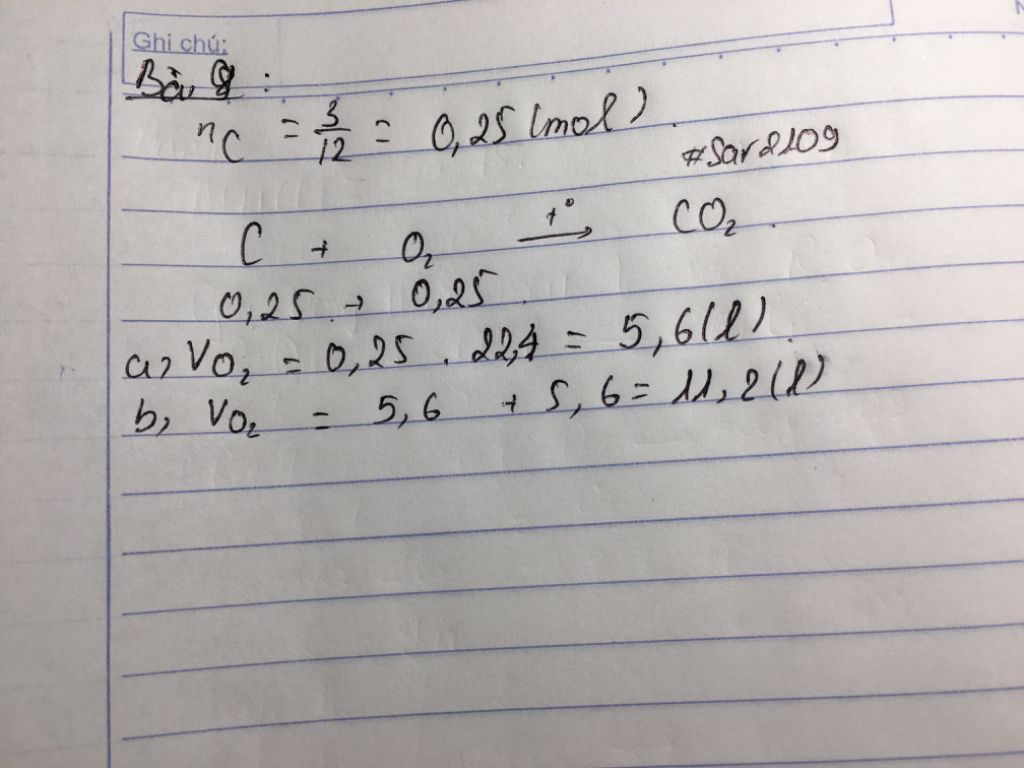 Ghi chú:
Bài 8:
nC = 3/12 = 0,25 (mol).
#Sar2109
C + O₂ —t°→ CO₂.
0,25 → 0,25
a, VO₂ = 0,25 . 22,4 = 5,6 (l).
b, VO₂ = 5,6 + 5,6 = 11,2 (l)